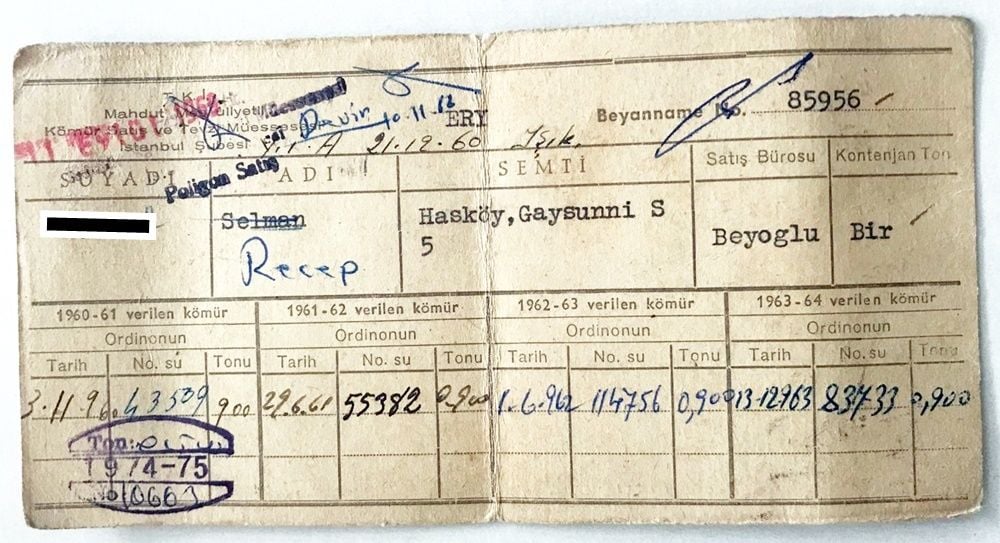 T. K. İ.
Mahdut Mes'uliyetli
Kömür Satış ve Tevzi Müessesesi
İstanbul Şubesi
Devir 10.11.12
ERY
Beyanname No. 85956
Poligon Satış
21.12.60 Işık.
SOYADI
ADI
SEMTİ
Satış Bürosu
Kontenjan Ton
Selman
Recep
Hasköy,Gaysunni S
5
Beyoglu
Bir
1960-61 verilen kömür
1961-62 verilen kömür
1962-63 verilen kömür
1963-64 verilen kömür
Ordinonun
Ordinonun
Ordinonun
Ordinonun
Tarih No. su Tonu Tarih No. su Tonu Tarih No. su Tonu Tarih No. su Tonu
3.11.960 43539 900 29.6.61 55382 0,900 1.6.962 114756 0,900 13.12963 83733 0,900
Ton:
1974-75
No 10663